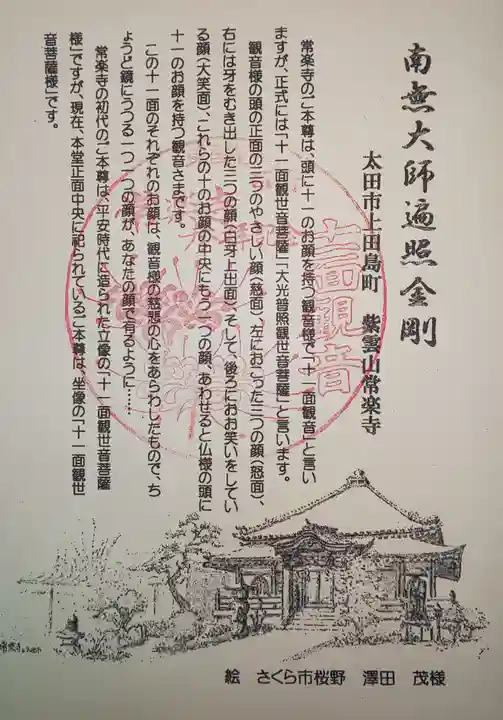 南無大師遍照金剛
太田市上田島町　紫雲山常楽寺
常楽寺のご本尊は、頭に十一のお顔を持つ観音様で、「十一面観音」と言い
ますが、正式には「十一面観世音菩薩」「大光普照観世音菩薩」と言います。
観音様の頭の正面の三つのやさしい顔(慈面)、左におこった三つの顔(怒面)、
右には牙をむき出した三つの顔(白牙上出面)、そして、後ろにおお笑いをしてい
る顔(大笑面)、これらの十のお顔の中央にもう一つの顔、あわせると仏様の頭に
十一のお顔を持つ観音さまです。
この十一面のそれぞれのお顔は、観音様の慈悲の心をあらわしたもので、ち
ょうど鏡にうつる一つ一つの顔が、あなたの顔で有るように……
常楽寺の初代のご本尊は、平安時代に造られた立像の「十一面観世音菩薩
様」ですが、現在、本堂正面中央に祀られているご本尊は、坐像の「十一面観世
音菩薩様」です。
十一面観音
絵　さくら市桜野　澤田　茂様